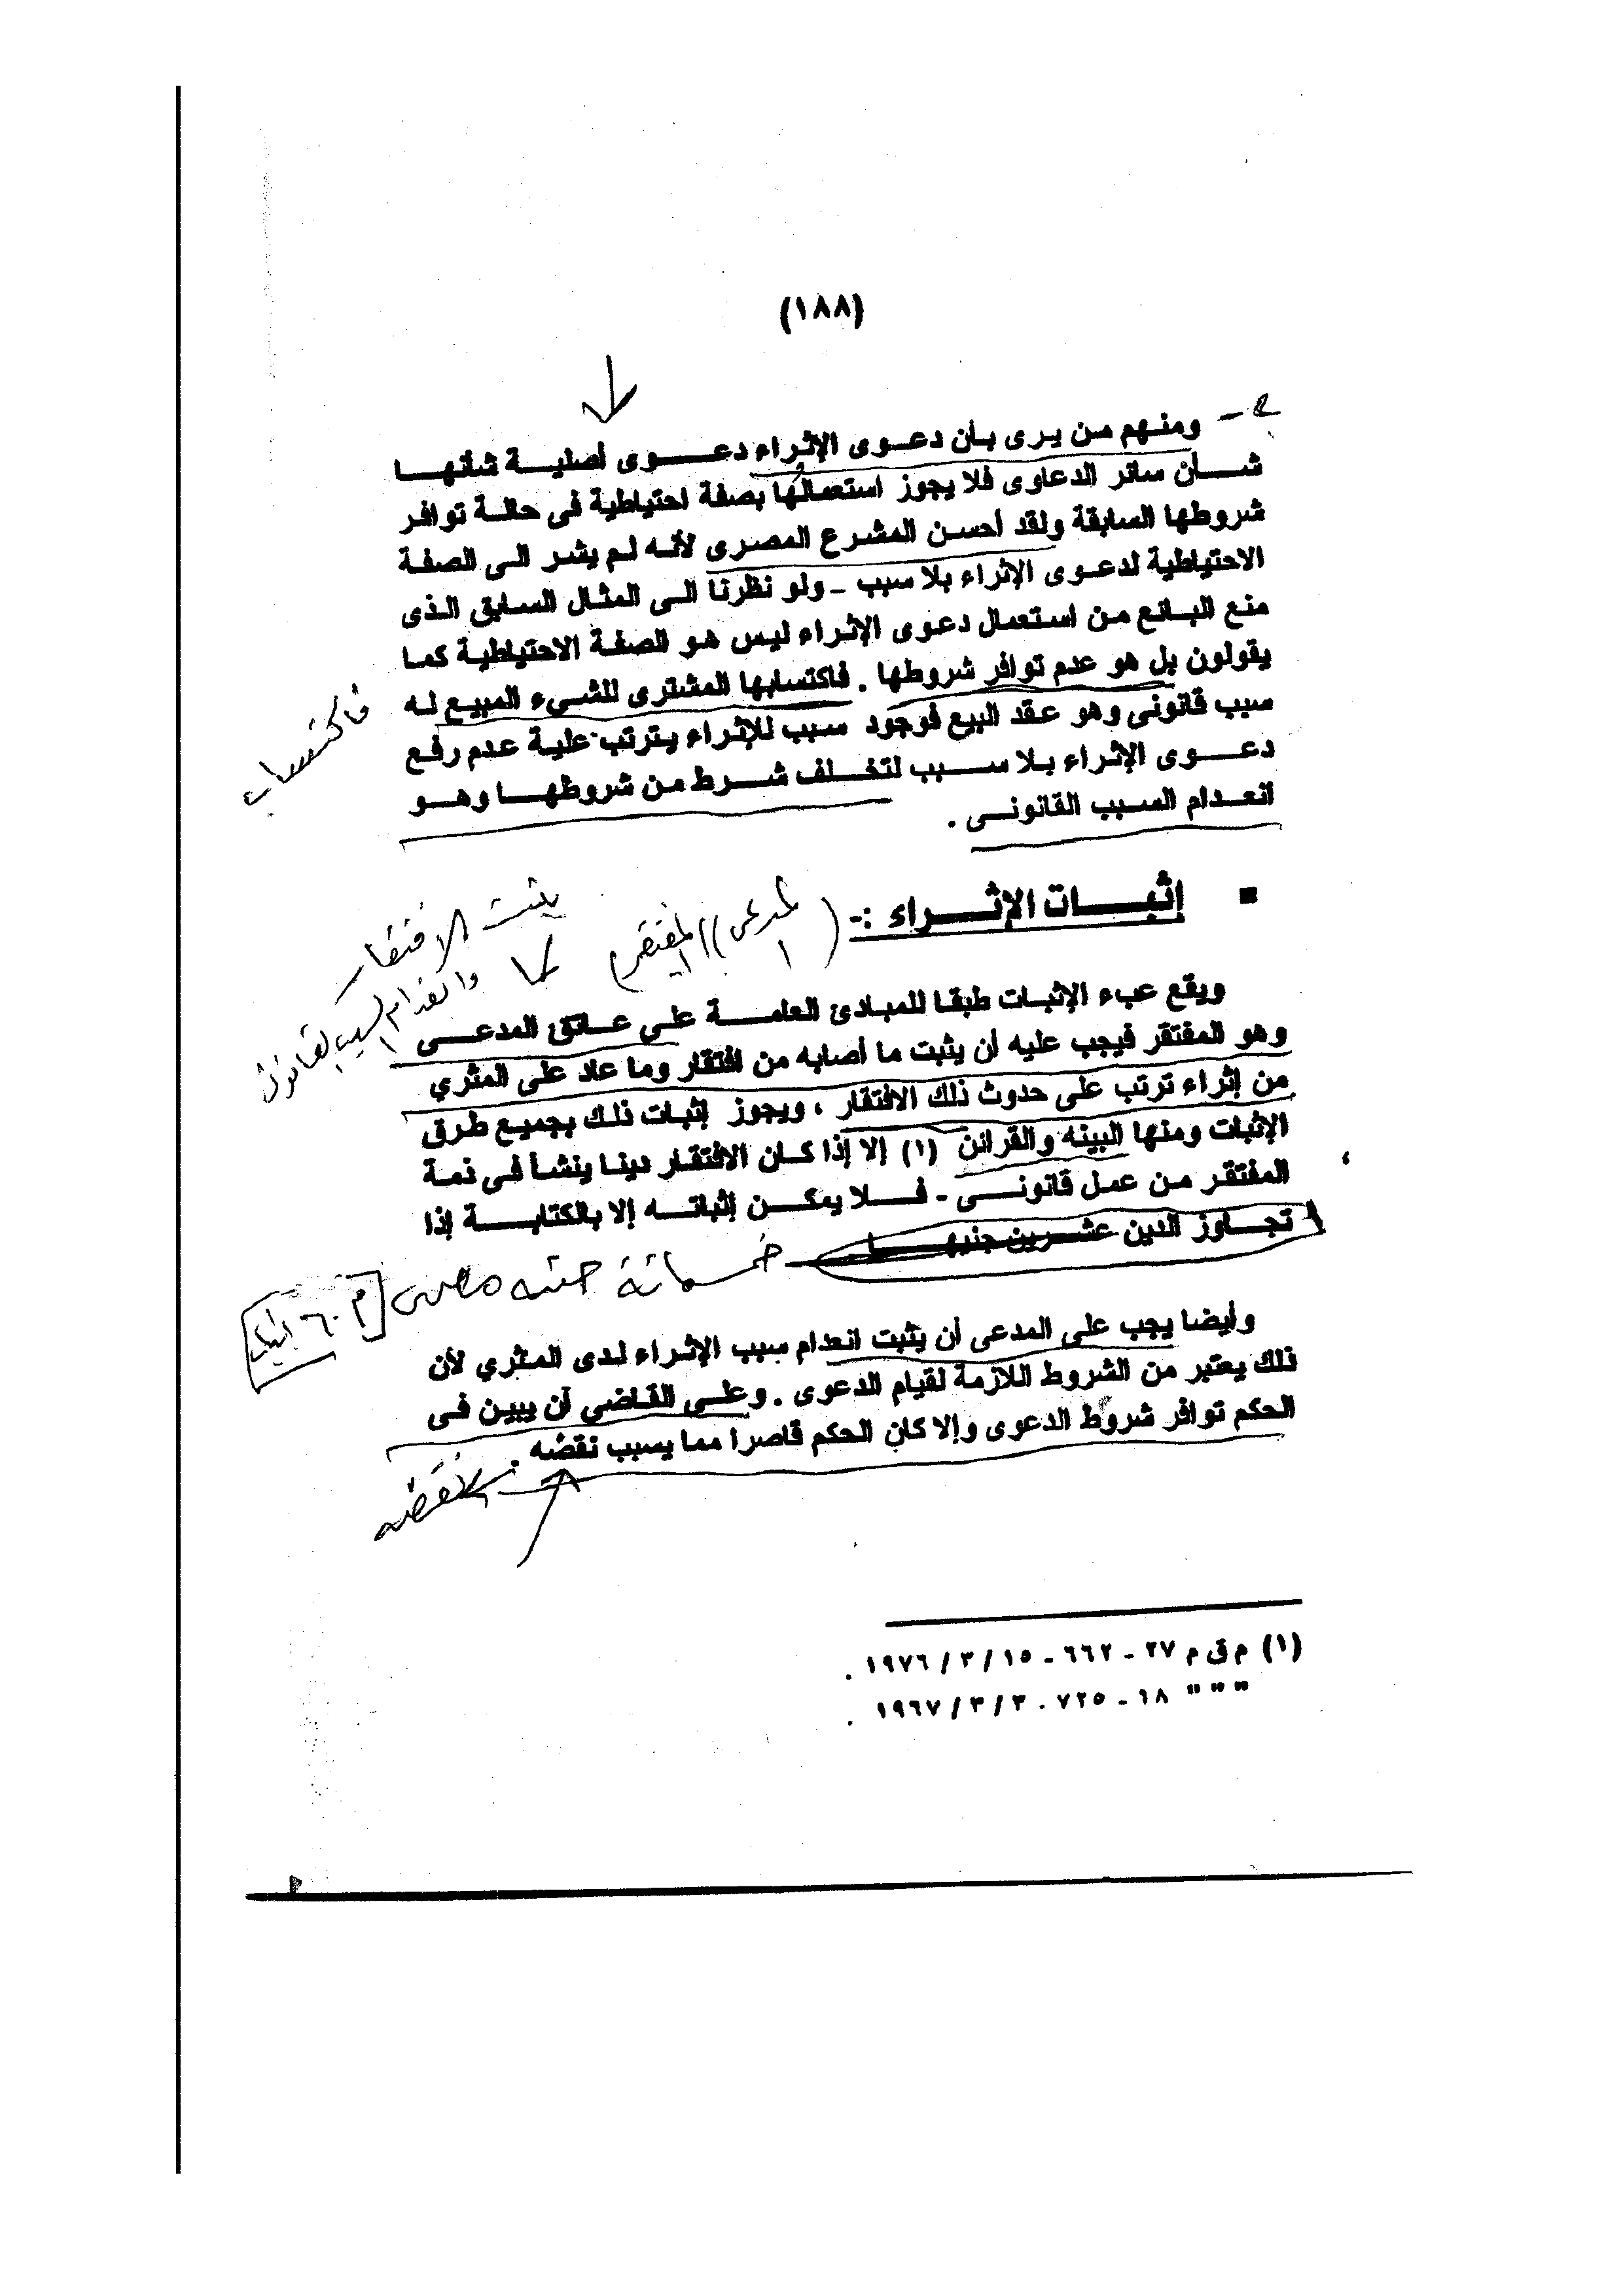 (١٨٨)
٢ - ومنهم من يرى بأن دعوى الإثراء دعوى أصلية شأنها
شأن سائر الدعاوى فلا يجوز استعمالها بصفة احتياطية فى حالة توافر
شروطها السابقة ولقد أحسن المشرع المصرى لأنه لم يشر الى الصفة
الاحتياطية لدعوى الإثراء بلا سبب - ولو نظرنا الى المثال السابق الذى
منع البائع من استعمال دعوى الإثراء ليس هو الصفة الاحتياطية كما
يقولون بل هو عدم توافر شروطها . فاكتسابها المشترى للشىء المبيع له
فاكتساب
سبب قانونى وهو عقد البيع فوجود سبب للإثراء يترتب علية عدم رفع
دعوى الإثراء بلا سبب لتخلف شرط من شروطها وهو
انعدام السبب القانونى .
▪ إثبات الإثراء :-
(المدعى) (المفتقر)
يثبت الافتقار
وانعدام السبب القانونى
ويقع عبء الإثبات طبقا للمبادئ العامة على عاتق المدعى
وهو المفتقر فيجب عليه أن يثبت ما أصابه من افتقار وما عاد على المثري
من إثراء ترتب على حدوث ذلك الافتقار ، ويجوز إثبات ذلك بجميع طرق
الإثبات ومنها البينه والقرائن (١) إلا إذا كان الافتقار دينا ينشأ فى ذمة
المفتقر من عمل قانونى - فلا يمكن إثباته إلا بالكتابة إذا
تجاوز الدين عشرين جنيها
خمسمائة جنيه مصرى [م ٦٠ إثبات]
وأيضا يجب على المدعى أن يثبت انعدام سبب الإثراء لدى المثري لأن
ذلك يعتبر من الشروط اللازمة لقيام الدعوى . وعلى القاضي أن يبين فى
الحكم توافر شروط الدعوى وإلا كان الحكم قاصرا مما يسبب نقضه .
(١) م ق م ٢٧ - ٦٦٢ - ١٥ / ٣ / ١٩٧٦ .
" " " ١٨ - ٧٢٥ - ٣ / ٣ / ١٩٦٧ .